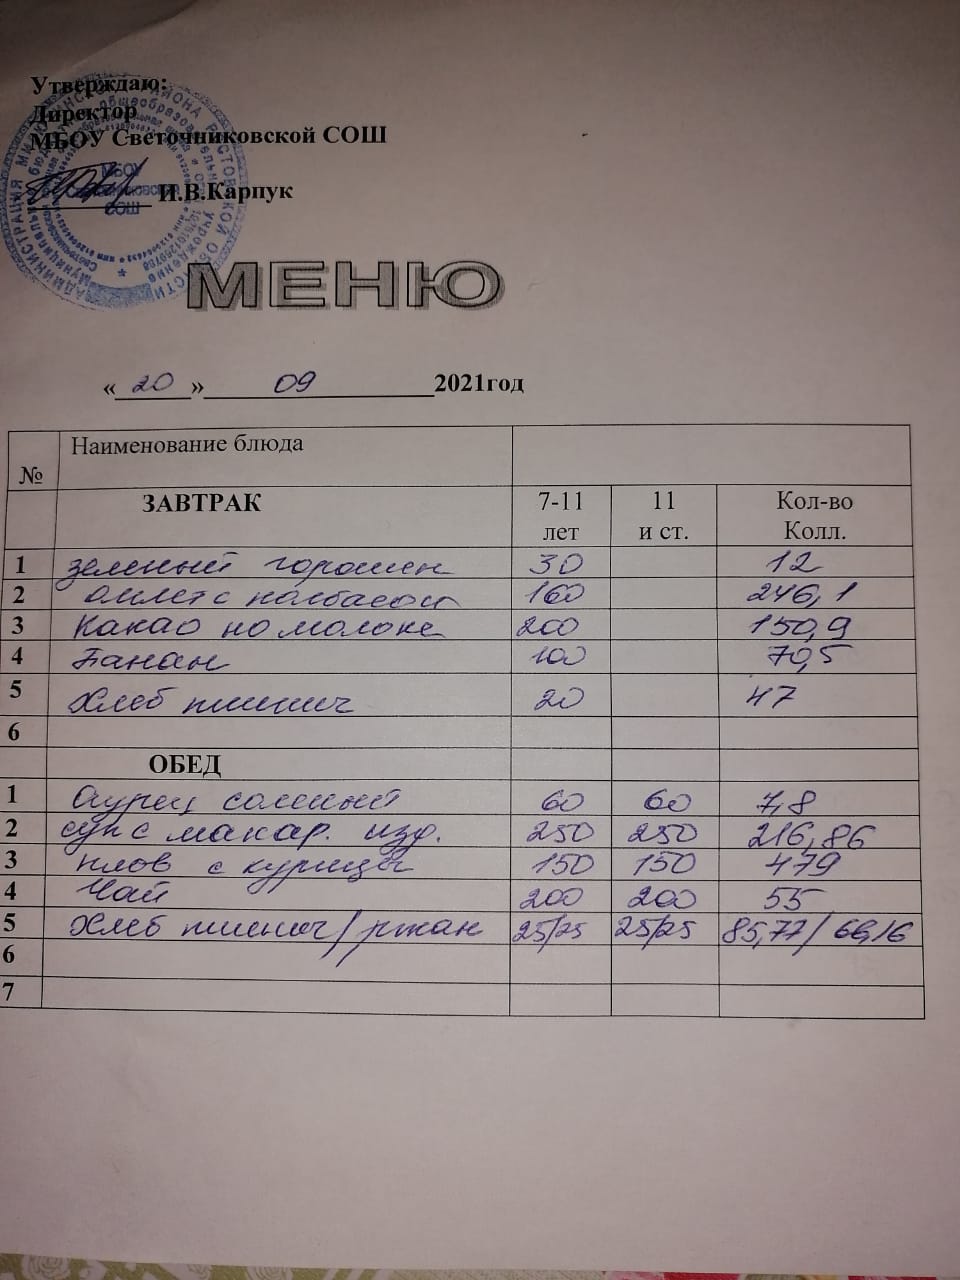 Утверждаю:
Директор
МБОУ Светочниковской СОШ
И.В.Карпук
МБОУ
СОШ
МЕНЮ
« 20 » 09 2021год
№ Наименование блюда
ЗАВТРАК 7-11 лет 11 и ст. Кол-во Колл.
1 зеленый горошек 30 12
2 омлет с колбасой 160 246,1
3 Какао на молоке 200 150,9
4 Банан 100 70,5
5 Хлеб пшенич 20 47
6
ОБЕД
1 Огурец соленый 60 60 7,8
2 суп с макар. изд. 250 250 216,86
3 плов с курицей 150 150 479
4 Чай 200 200 55
5 Хлеб пшенич/ржан 25/25 25/25 85,77/66,16
6
7